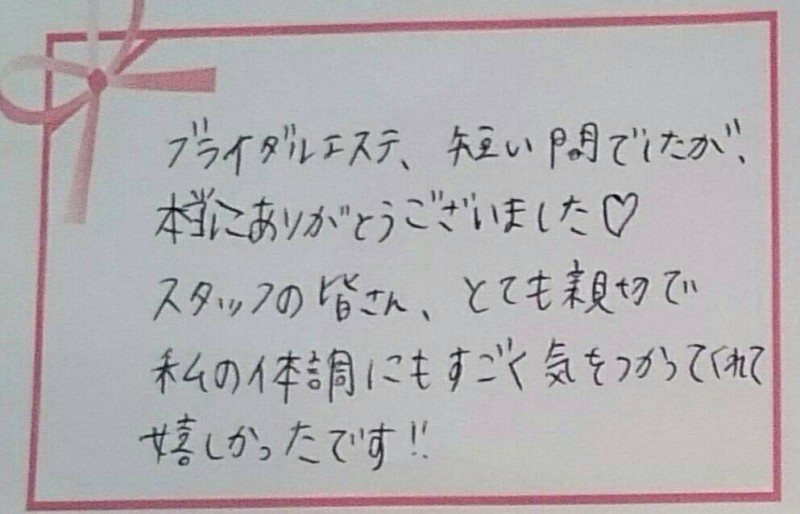 ブライダルエステ、短い間でしたが、
本当にありがとうございました♡
スタッフの皆さん、とても親切で
私の体調にもすごく気をつかってくれて
嬉しかったです!!